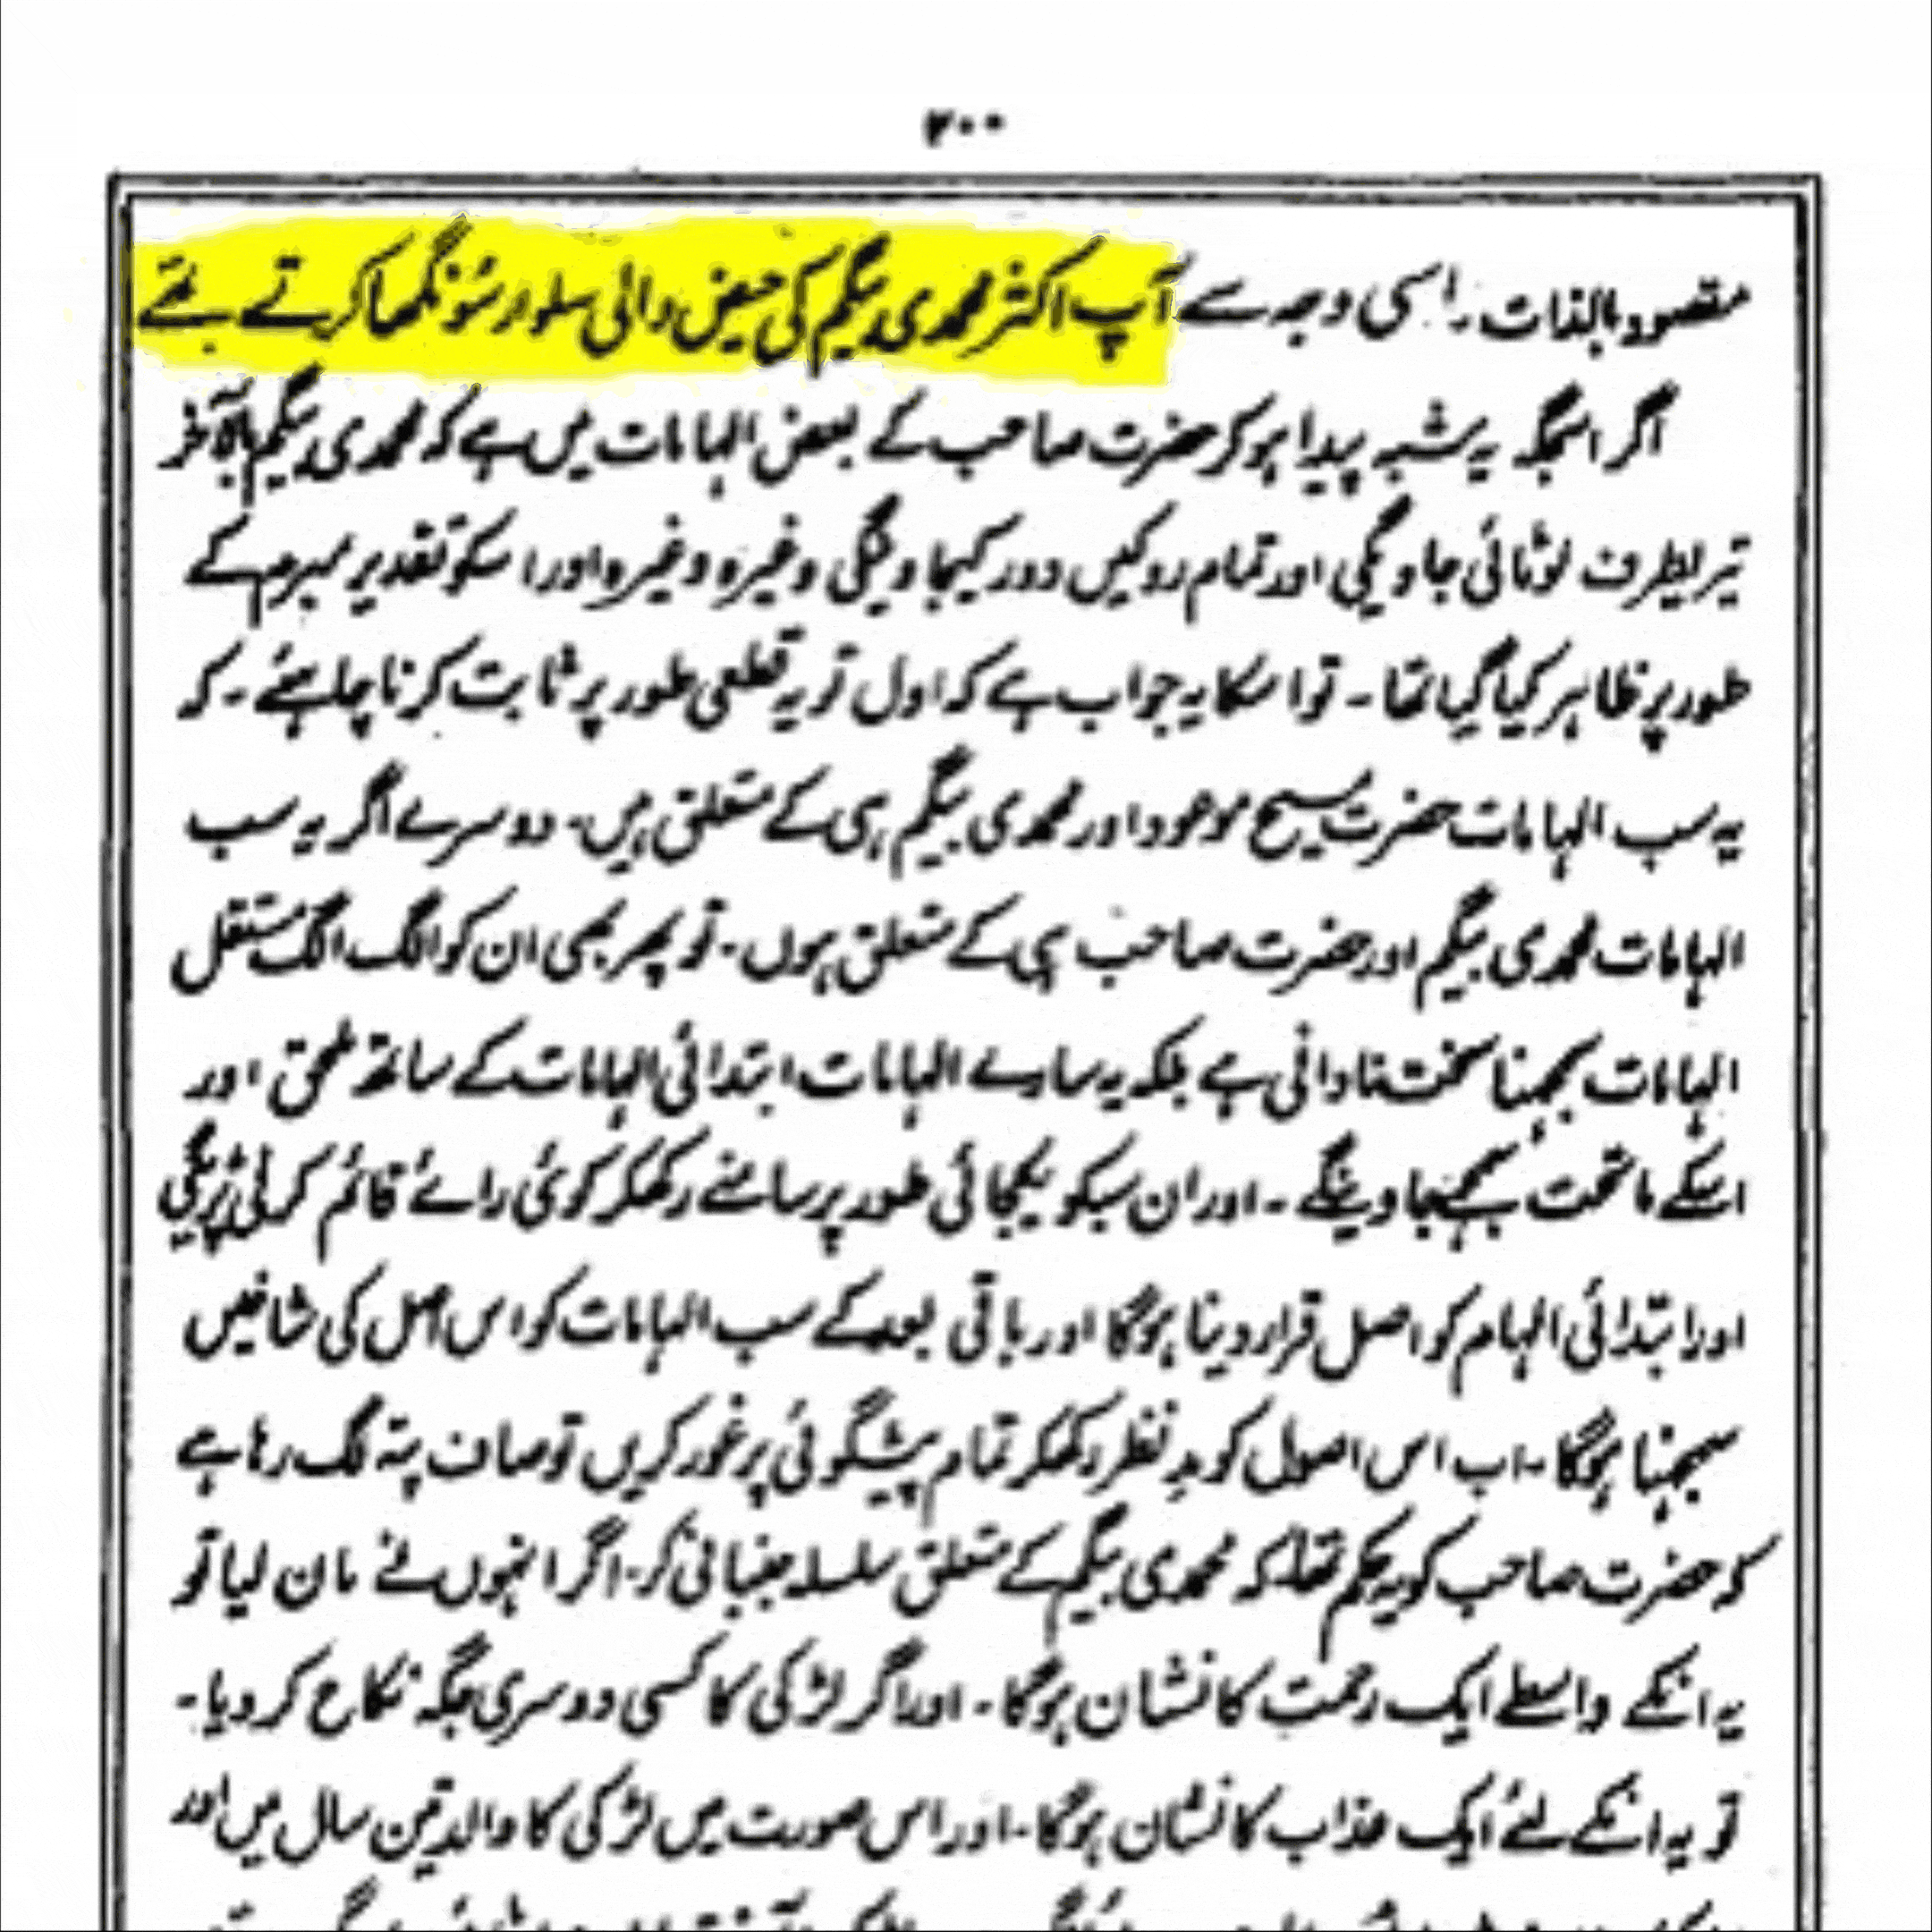 ۲۰۰
مقصود بالذات۔ اسی وجہ سے آپ اکثر محمدی بیگم کی حیض والی سلوار سونگھا کرتے تھے
اگر اسجگہ یہ شبہ پیدا ہو کر حضرت صاحب کے بعض الہامات میں ہے کہ محمدی بیگم بالآخر
تیریطرف لوٹائی جاویگی اور تمام روکیں دور کیجاویگی وغیرہ وغیرہ اور اسکو تقدیر مبرم کے
طور پر ظاہر کیا گیا تھا۔ تو اسکا یہ جواب ہے کہ اول تو یہ قطعی طور پر ثابت کرنا چاہئے۔ کہ
یہ سب الہامات حضرت مسیح موعود اور محمدی بیگم ہی کے متعلق ہیں۔ دوسرے اگر یہ سب
الہامات محمدی بیگم اور حضرت صاحب ہی کے متعلق ہوں۔ تو پھر بھی ان کو الگ الگ مستقل
الہامات سمجہنا سخت نادانی ہے بلکہ یہ سارے الہامات ابتدائی الہامات کے ساتھ ملحق اور
اسکے ماتحت سمجہے جاوینگے۔ اور ان سبکو یکجائی طور پر سامنے رکھکر کوئی رائے قائم کرنی پڑیگی
اور ابتدائی الہام کو اصل قرار دینا ہوگا اور باقی بعد کے سب الہامات کو اس اصل کی شاخیں
سمجہنا ہوگا۔ اب اس اصول کو مدِ نظر رکھکر تمام پیشگوئی پر غور کریں تو صاف پتہ لگ رہا ہے
کہ حضرت صاحب کو یہ حکم تھا کہ محمدی بیگم کے متعلق سلسلہ جنبانی کر۔ اگر انہوں نے مان لیا تو
یہ انکے واسطے ایک رحمت کا نشان ہوگا۔ اور اگر لڑکی کا کسی دوسری جگہ نکاح کر دیا۔
تو یہ انکے لئے ایک عذاب کا نشان ہوگا۔ اور اس صورت میں لڑکی کا والد تین سال میں اور